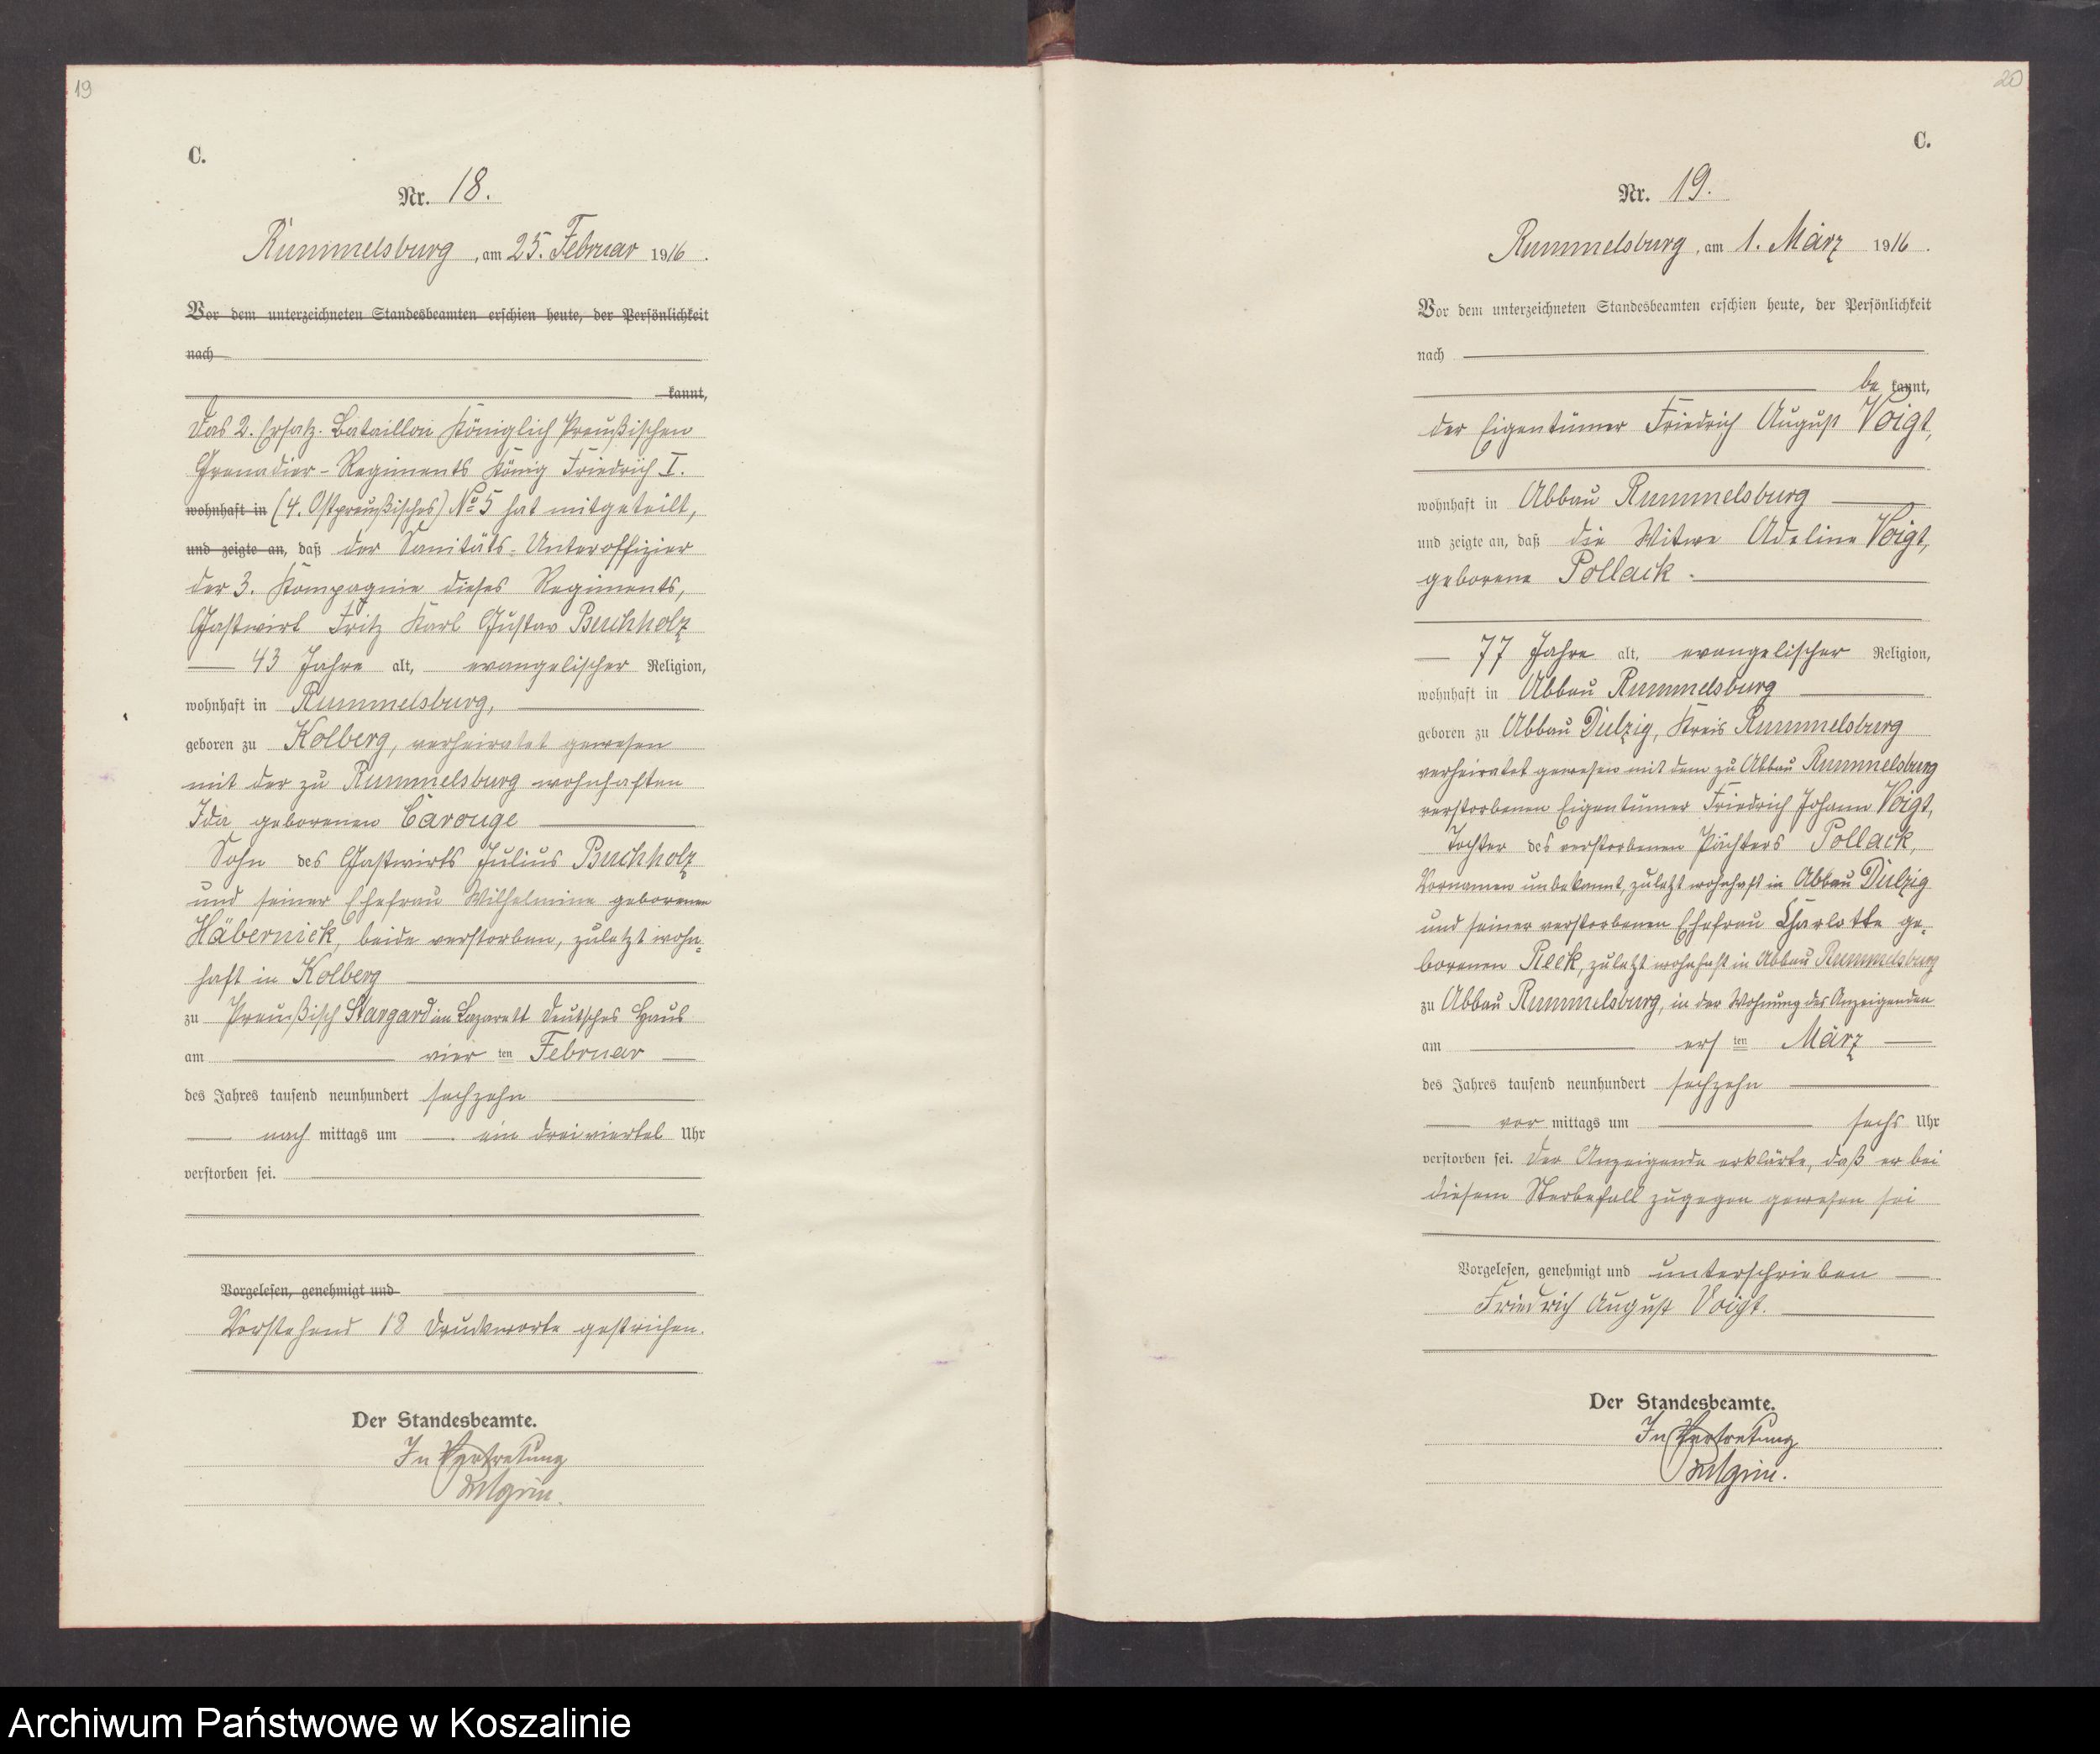 19
C.
Nr. 18.
Rummelsburg, am 25. Februar 1916.
Vor dem unterzeichneten Standesbeamten erschien heute, der Persönlichkeit
nach
kannt,
Das 2. Ersatz-Bataillon Königlich Preußischen
Grenadier-Regiments König Friedrich I.
wohnhaft in (4. Ostpreußisches) No 5 hat mitgeteilt,
und zeigte an, daß der Sanitäts-Unteroffizier
der 3. Kompagnie dieses Regiments,
Gastwirt Fritz Karl Gustav Buchholz
43 Jahre alt, evangelischer Religion,
wohnhaft in Rummelsburg,
geboren zu Kolberg, verheiratet gewesen
mit der zu Rummelsburg wohnhaften
Ida geborenen Carouge
Sohn des Gastwirts Julius Buchholz
und seiner Ehefrau Wilhelmine geborenen
Häbernick, beide verstorben, zuletzt wohn-
haft in Kolberg
zu Preußisch Stargard im Lazarett Deutsches Haus
am vier ten Februar
des Jahres tausend neunhundert sechzehn
nach mittags um ein dreiviertel Uhr
verstorben sei.
Vorgelesen, genehmigt und
Vorstehend 18 Druckworte gestrichen.
Der Standesbeamte.
In Vertretung
20
C.
Nr. 19.
Rummelsburg, am 1. März 1916.
Vor dem unterzeichneten Standesbeamten erschien heute, der Persönlichkeit
nach
be kannt,
der Eigentümer Friedrich August Voigt,
wohnhaft in Abbau Rummelsburg
und zeigte an, daß die Witwe Adeline Voigt,
geborene Pollack.
77 Jahre alt, evangelischer Religion,
wohnhaft in Abbau Rummelsburg
geboren zu Abbau Dulzig, Kreis Rummelsburg
verheiratet gewesen mit dem zu Abbau Rummelsburg
verstorbenen Eigentümer Friedrich Johann Voigt,
Tochter des verstorbenen Pächters Pollack,
Vornamen unbekannt, zuletzt wohnhaft in Abbau Dulzig
und seiner verstorbenen Ehefrau Charlotte ge-
borenen Reck, zuletzt wohnhaft in Abbau Rummelsburg
zu Abbau Rummelsburg, in der Wohnung des Anzeigenden
am ers ten März
des Jahres tausend neunhundert sechzehn
vor mittags um sechs Uhr
verstorben sei. Der Anzeigende erklärte, daß er bei
diesem Sterbefall zugegen gewesen sei
Vorgelesen, genehmigt und unterschrieben
Friedrich August Voigt.
Der Standesbeamte.
In Vertretung
Archiwum Państwowe w Koszalinie